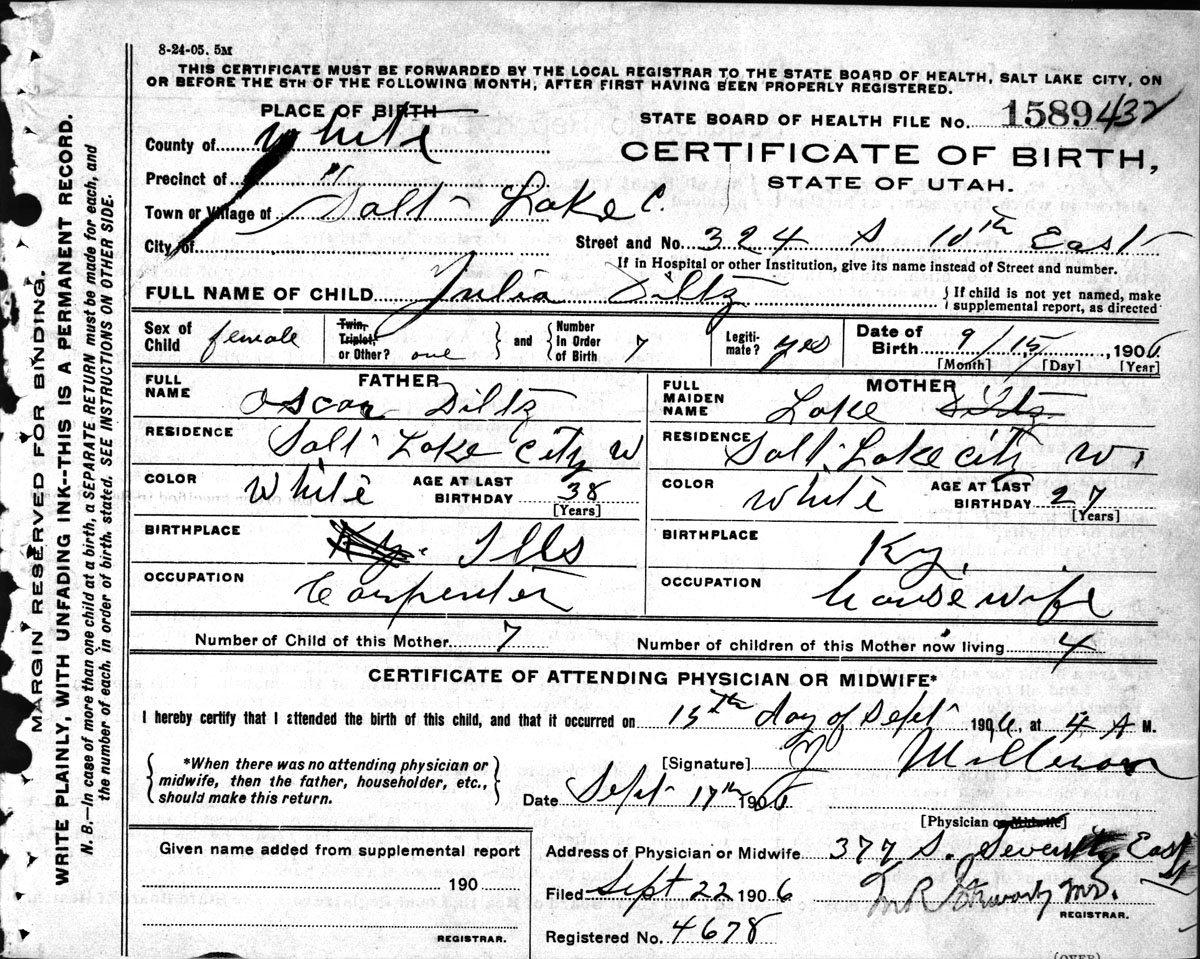 8-24-05. 5M
THIS CERTIFICATE MUST BE FORWARDED BY THE LOCAL REGISTRAR TO THE STATE BOARD OF HEALTH, SALT LAKE CITY, ON
OR BEFORE THE 5TH OF THE FOLLOWING MONTH, AFTER FIRST HAVING BEEN PROPERLY REGISTERED.
PLACE OF BIRTH
STATE BOARD OF HEALTH FILE No. 1589 432
County of White
CERTIFICATE OF BIRTH,
STATE OF UTAH.
Precinct of "
Town or Village of Salt Lake C.
City of
Street and No. 324 S 10th East
If in Hospital or other Institution, give its name instead of Street and number.
FULL NAME OF CHILD Julia Diltz
If child is not yet named, make
supplemental report, as directed
Sex of Child female
Twin, Triplet, or Other? one
and
Number In Order of Birth 7
Legitimate? yes
Date of Birth 9/15, 1906
[Month] [Day] [Year]
FATHER
FULL NAME Oscar Diltz
RESIDENCE Salt Lake City
COLOR White
AGE AT LAST BIRTHDAY 38
[Years]
BIRTHPLACE Ky. Ills
OCCUPATION Carpenter
MOTHER
FULL MAIDEN NAME Lake Diltz
RESIDENCE Salt Lake City
COLOR White
AGE AT LAST BIRTHDAY 27
[Years]
BIRTHPLACE Ky.
OCCUPATION housewife
Number of Child of this Mother 7
Number of children of this Mother now living 4
CERTIFICATE OF ATTENDING PHYSICIAN OR MIDWIFE*
I hereby certify that I attended the birth of this child, and that it occurred on 15th day of Sept 1906, at 4 A M.
*When there was no attending physician or
midwife, then the father, householder, etc.,
should make this return.
[Signature]
Date Sept 17th 1906
[Physician or Midwife]
Address of Physician or Midwife 377 S. Seventh East St
Filed Sept 22 1906
M.D.
REGISTRAR.
Registered No. 4678
Given name added from supplemental report
190
REGISTRAR.
(OVER)
MARGIN RESERVED FOR BINDING.
WRITE PLAINLY, WITH UNFADING INK--THIS IS A PERMANENT RECORD.
N. B.—In case of more than one child at a birth, a SEPARATE RETURN must be made for each, and
the number of each, in order of birth, stated. SEE INSTRUCTIONS ON OTHER SIDE.